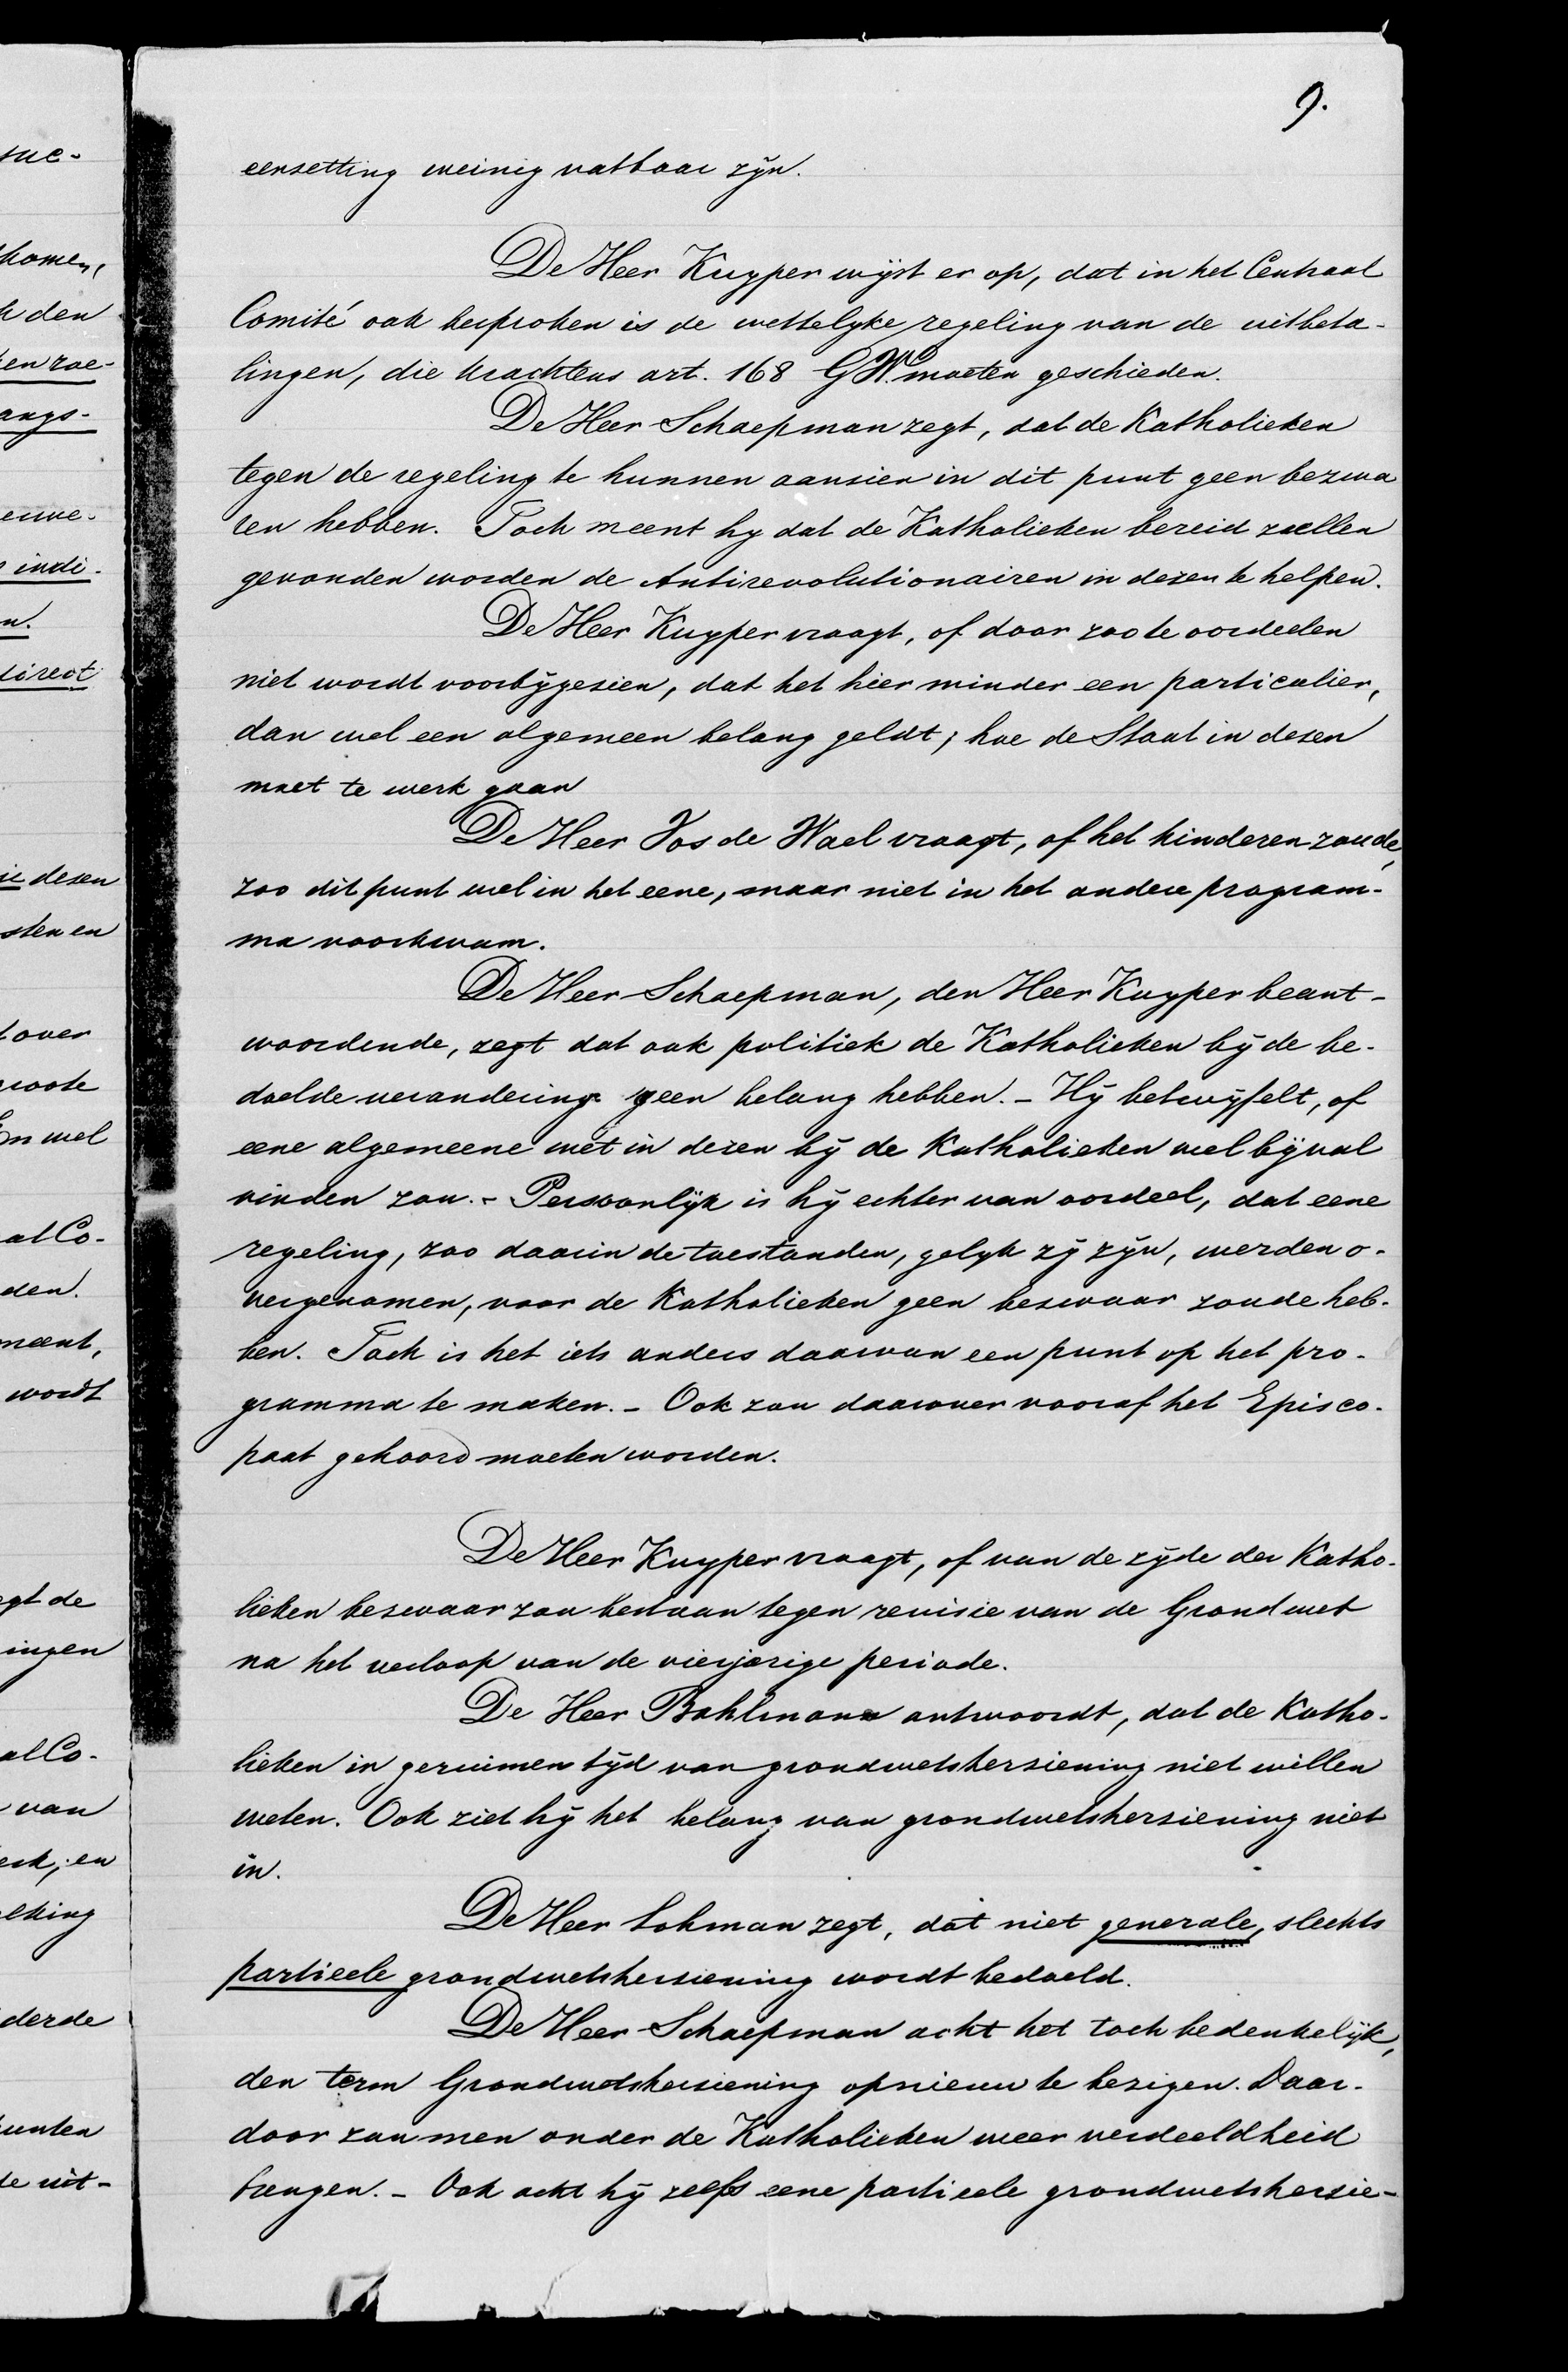 9.
eenzetting weinig vatbaar zijn.
De Heer Kuyper wijst er op, dat in het Centraal
Comité ook besproken is de wettelijke regeling van de uitbeta-
lingen, die krachtens art. 168 GW. moeten geschieden.
De Heer Schaepman zegt, dat de Katholieken
tegen de regeling te hunnen aanzien in dit punt geen bezwa
ren hebben. Toch meent hy dat de Katholieken bereid zullen
gevonden worden de Antirevolutionairen in dezen te helpen.
De Heer Kuyper vraagt, of door zoo te oordeelen
niet wordt voorbijgezien, dat het hier minder een particulier,
dan wel een algemeen belang geldt; hoe de Staat in dezen
moet te werk gaan
De Heer Vos de Wael vraagt, of het hinderen zoude,
zoo dit punt wel in het eene, maar niet in het andere program-
ma voorkwam.
De Heer Schaepman, den Heer Kuyper beant-
woordende, zegt dat ook politiek de Katholieken bij de be-
doelde verandering geen belang hebben. - Hij betwijfelt, of
eene algemeene wet in dezen bij de Katholieken wel bijval
vinden zou. - Persoonlijk is hij echter van oordeel, dat eene
regeling, zoo daarin de toestanden, gelijk zij zijn, werden o-
vergenomen, voor de Katholieken geen bezwaar zoude heb-
ben. Toch is het iets anders daarvan een punt op het pro-
gramma te maken. - Ook zou daarover vooraf het Episco-
paat gehoord moeten worden.
De Heer Kuyper vraagt, of van de zijde der Katho-
lieken bezwaar zou bestaan tegen revisie van de Grondwet
na het verloop van de vierjarige periode.
De Heer Bahlmann antwoordt, dat de Katho-
lieken in geruimen tijd van grondwetsherziening niet willen
weten. Ook ziet hij het belang van grondwetsherziening niet
in.
De Heer Lohman zegt, dat niet generale, slechts
partieele grondwetsherziening wordt bedoeld.
De Heer Schaepman acht het toch bedenkelijk,
den term Grondwetsherziening opnieuw te bezigen. Daar-
door zou men onder de Katholieken weer verdeeldheid
brengen. - Ook acht hij zelfs eene partieele grondwetsherzie-